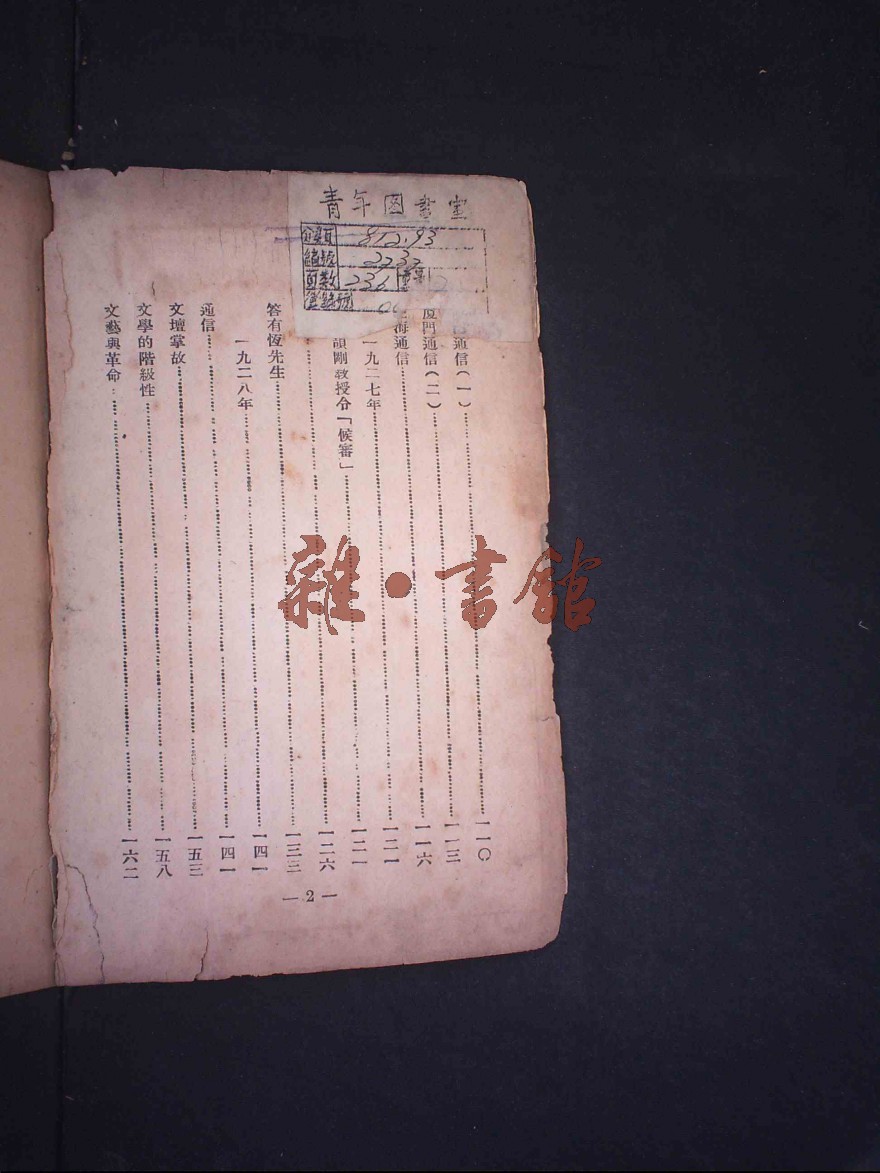 青年图書室
分類 812.93
編號 3232
頁數 236
通信(一)一一〇
厦門通信(二)一一三
海通信一一六
一九二七年一二一
頡剛教授令「候審」一二一
一二六
答有恆先生一三三
一九二八年一四一
通信一四一
文壇掌故一五三
文學的階級性一五八
文藝與革命一六二
—2—
雜·書館